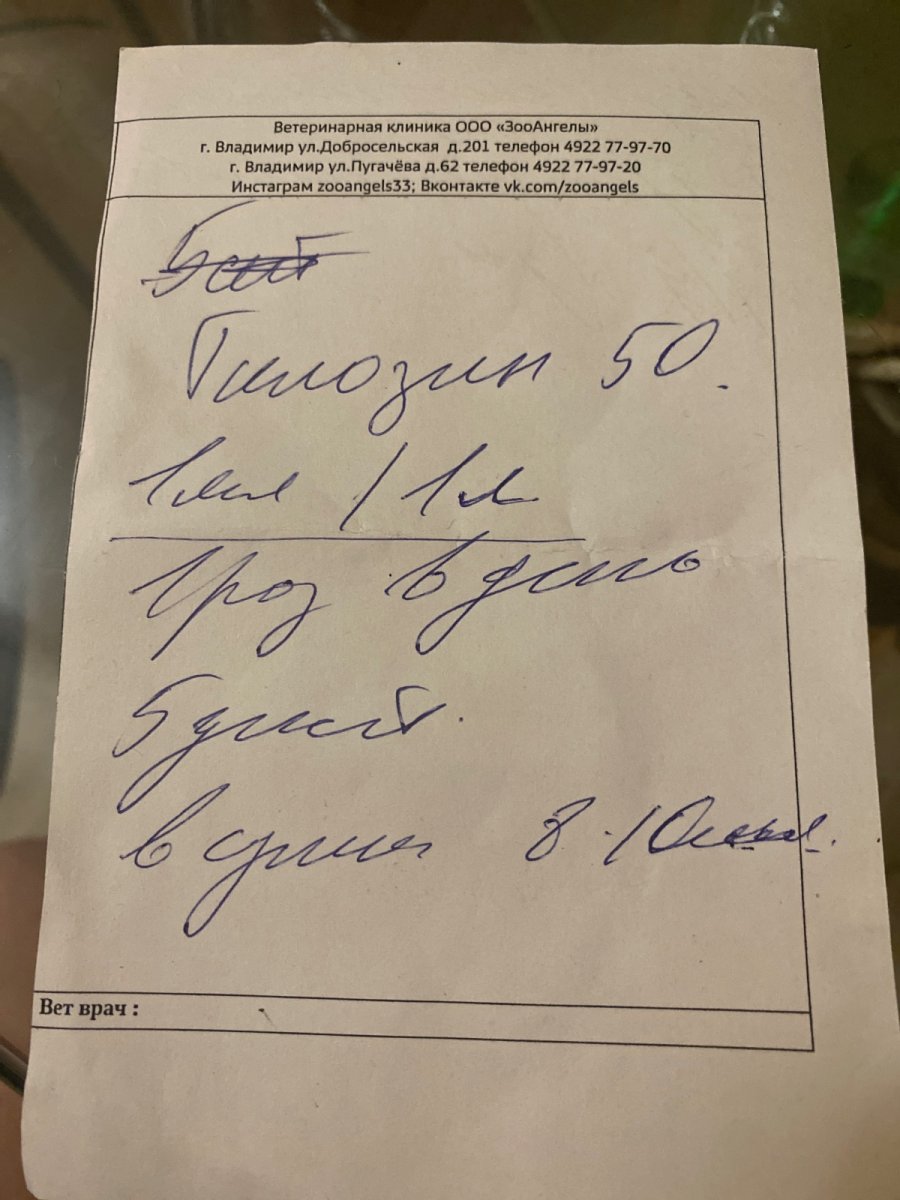 Ветеринарная клиника ООО «ЗооАнгелы»
г. Владимир ул.Добросельская д.201 телефон 4922 77-97-70
г. Владимир ул.Пугачёва д.62 телефон 4922 77-97-20
Инстаграм zooangels33; Вконтакте vk.com/zooangels
Тилозин 50.
1мл / 1л
1 раз в день
5 дней.
в 8-10
Вет врач :